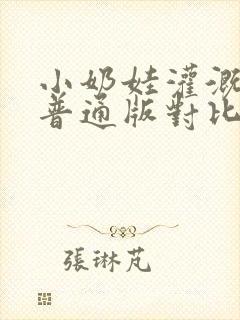 小奶娃灌溉
普通版對比
張琳芃